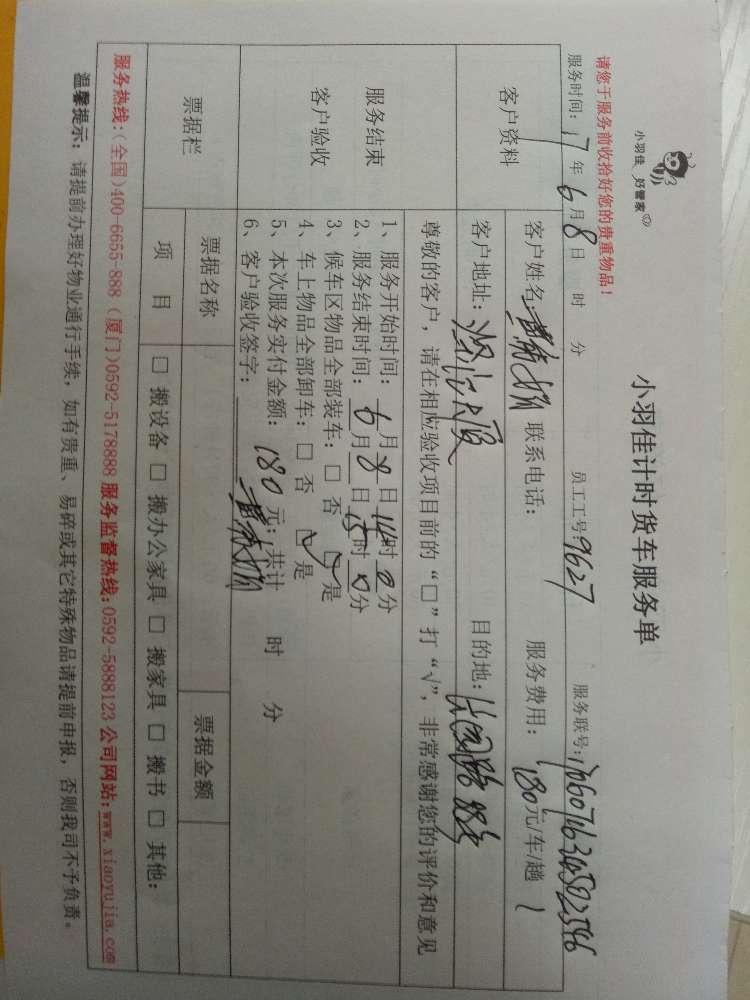 小羽佳 好管家
小羽佳计时货车服务单
请您于服务前收拾好您的贵重物品！
服务时间：17年6月8日 时 分 员工工号9627 服务联号：
客户资料
客户姓名 联系电话： 服务费用：180元/车/趟 1
客户地址： 目的地：
尊敬的客户，请在相应验收项目前的“□”打“√”，非常感谢您的评价和意见
服务结束
客户验收
1、服务开始时间：6月8日14时0分
2、服务结束时间：6月8日15时0分
3、候车区物品全部装车：□ 否 ☑ 是
4、车上物品全部卸车：□ 否 ☑ 是
5、本次服务实付金额：180元；共计 时 分
6、客户验收签字：
票据栏
票据名称 票据金额
项 目 □ 搬设备 □ 搬办公家具 □ 搬家具 □ 搬书 □ 其他：
服务热线：（全国）400-6655-888（厦门）0592-5178888 服务监督热线：0592-5888123 公司网站：www.xiaoyujia.com
温馨提示：请提前办理好物业通行手续，如有贵重、易碎或其它特殊物品请提前申报，否则我司不予负责。